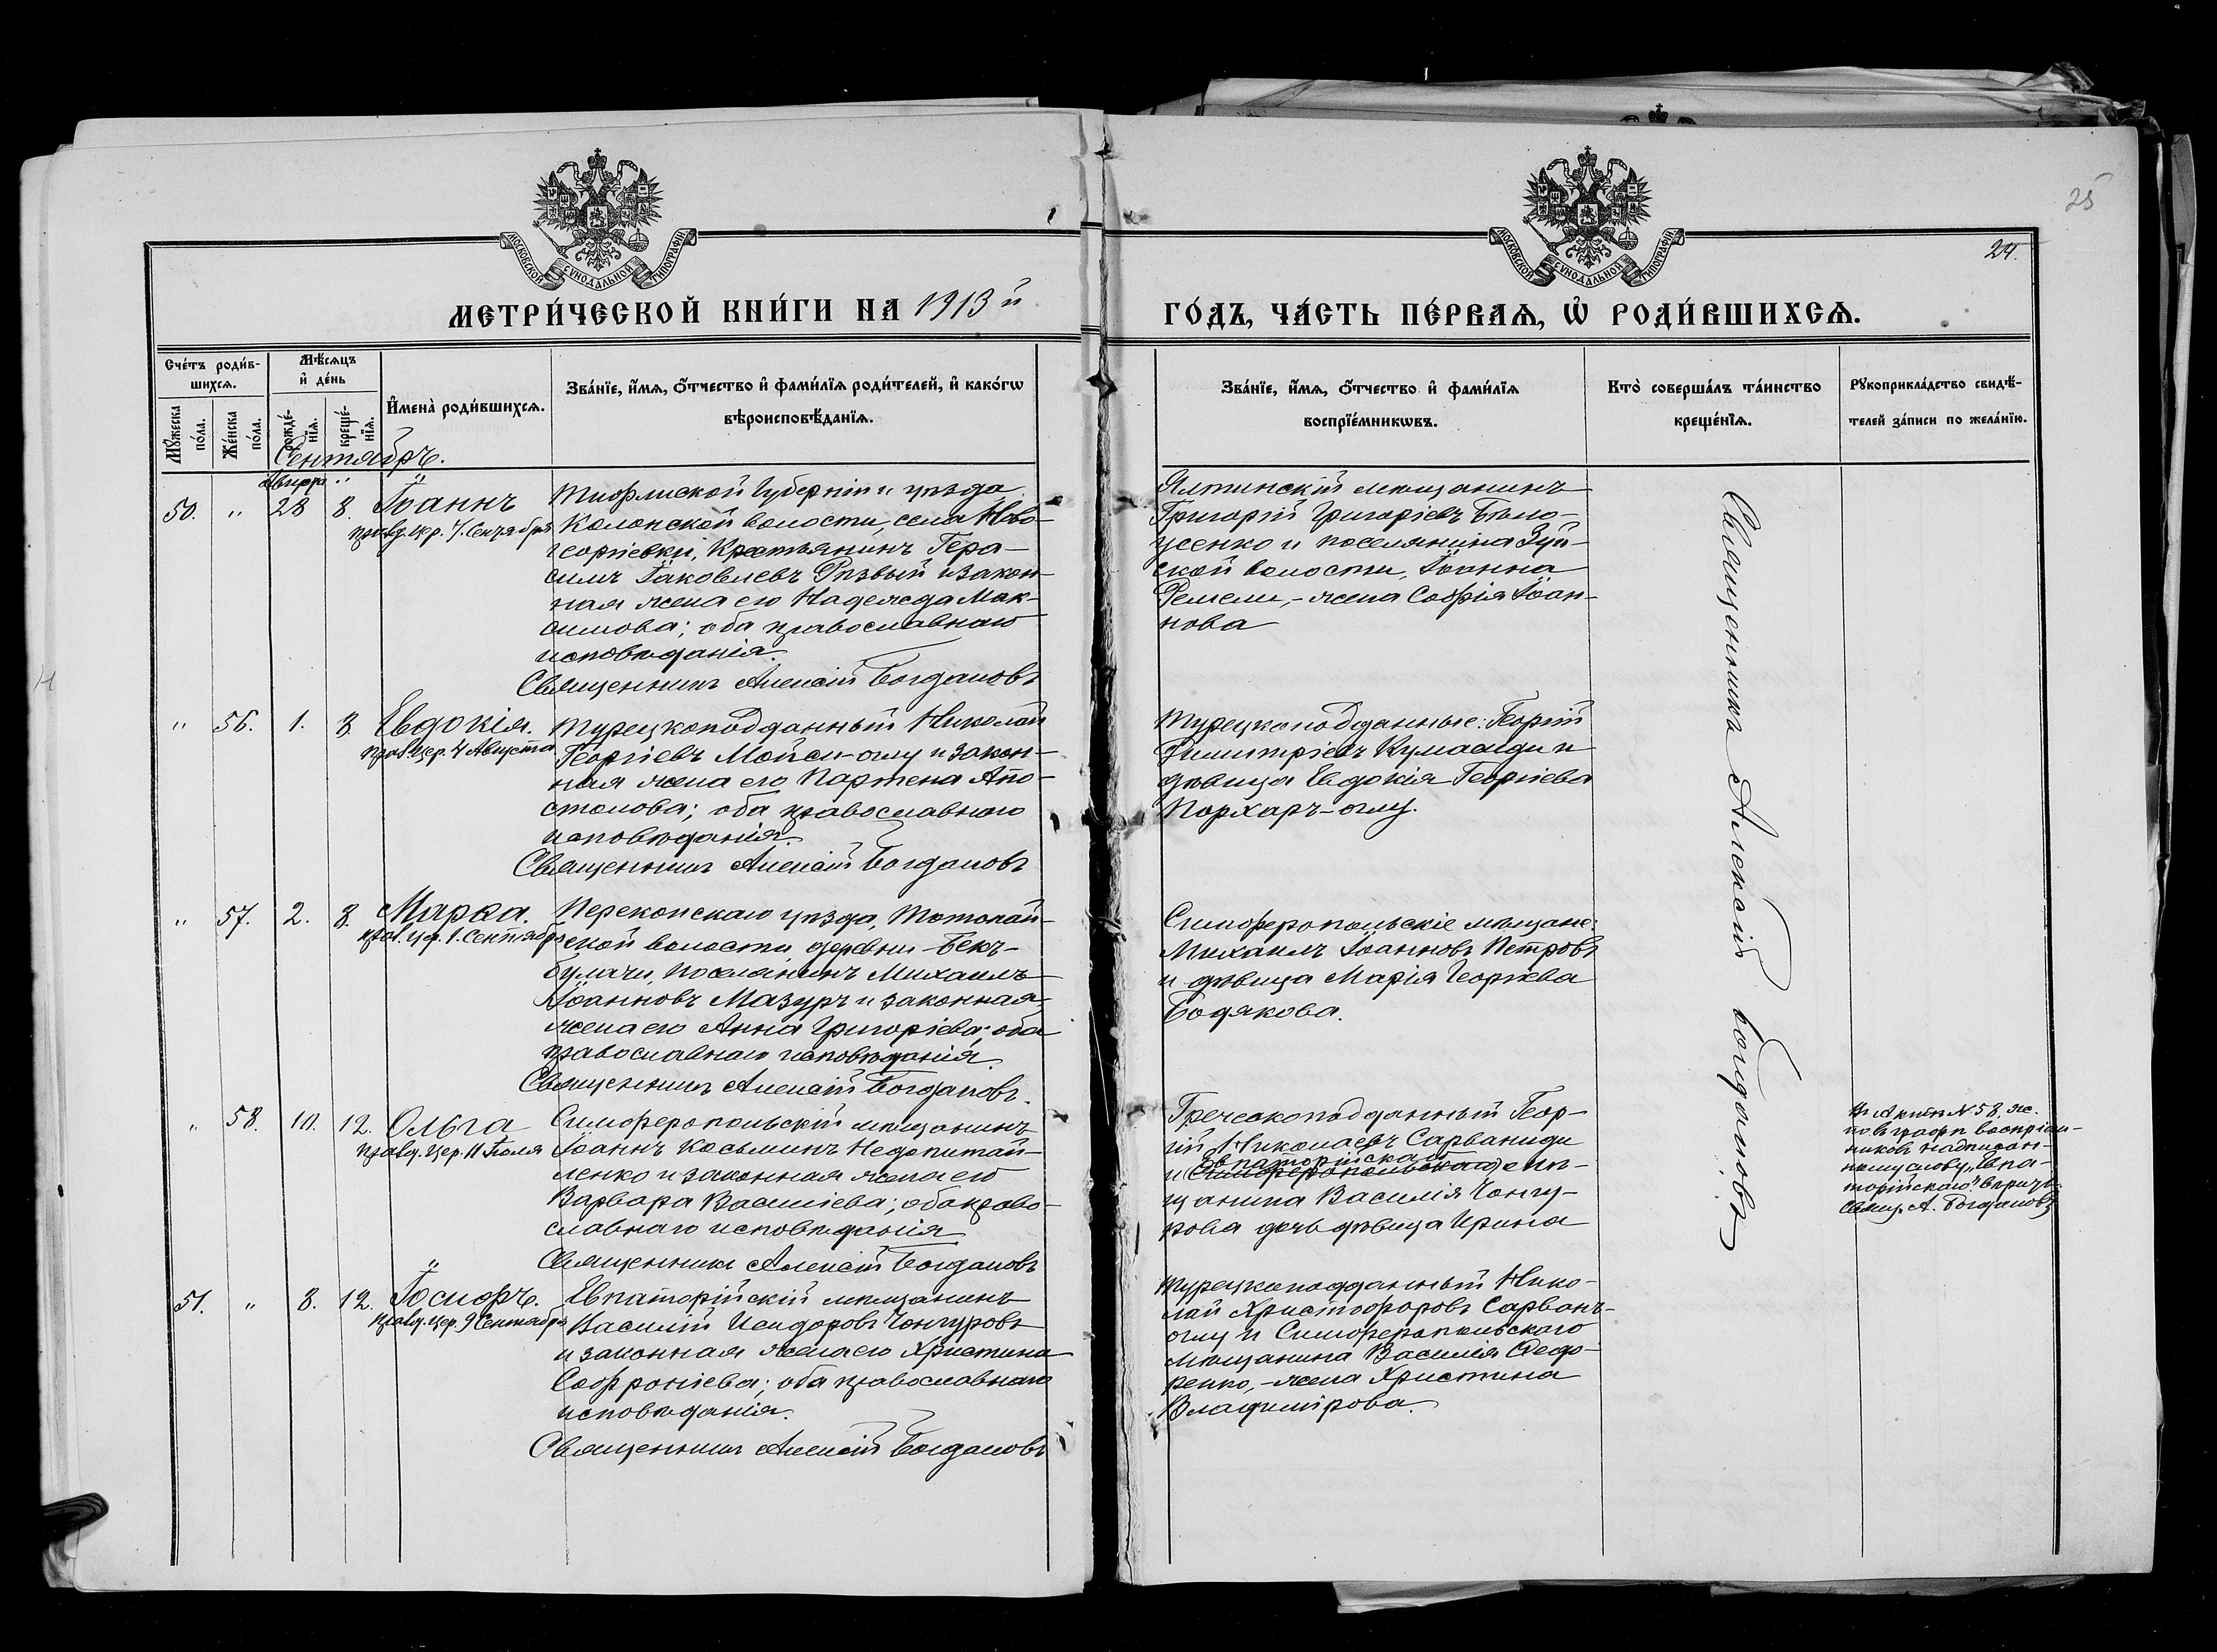 25
24.
МОСКОВСКОЙ СѴНОДАЛЬНОЙ ТИПОГРАФІИ
МОСКОВСКОЙ СѴНОДАЛЬНОЙ ТИПОГРАФІИ
МЕТРИ́ЧЕСКОЙ КНИ́ГИ НА 1913й
ГО́ДЪ, ЧА́СТЬ ПЕ́РВАѦ, Ѡ҆ РОДИ́ВШИХСѦ.
Сче́тъ роди́в-
шихсѧ.
Мꙋ́жеска по́ла.
Же́нска по́ла.
Мѣ́сѧцъ и҆ де́нь
рожде́-нїѧ.
креще́-нїѧ.
И҆мена̀ роди́вшихсѧ.
Зва́нїе, и҆́мѧ, ѻ҆́тчество и҆ фами́лїѧ роди́телей, и҆ како́гѡ
вѣроисповѣ́данїѧ.
Зва́нїе, и҆́мѧ, ѻ҆́тчество и҆ фами́лїѧ
воспрїе́мникѡвъ.
Кто̀ соверша́лъ та́инство
креще́нїѧ.
Рꙋкоприкла́дство свидѣ́-
телей за́писи по жела́нїю.
Сентябрь.
50. " 28 8. Іоаннъ
правд. цер. 7. Сентября
Тифлиской Губерніи и уѣзда
Колонской волости, села Ново-
георгіевки, Крестьянинъ Гера-
симъ Іаковлевъ Рѣзвый и закон-
ная жена его Надежда Мак-
симова; оба православнаго
исповѣданія.
Священникъ Алексій Богдановъ
Ялтинскій мѣщанинъ
Григорій Григоріевъ Бѣло-
усенко и поселянина Зуй-
ской волости, Іоанна
Ремели,- жена Софія Іоан-
нова
" 56. 1. 8 Евдокія.
прав. цер. 4 Августа
Турецкоподданный Николай
Георгіевъ Мойси-оглу и закон-
ная жена его Партена Апо-
столова; оба православнаго
исповѣданія.
Священникъ Алексій Богдановъ
Турецкоподданные: Георгій
Димитріевъ Кумаиди и
дѣвица Евдокія Георгіева
Порхаръ-оглу.
" 57. 2. 8. Марѳа.
прав. цер. 1. Сентября
Перекопскаго уѣзда, Тотонай-
ской волости, деревни Бекъ-
булачи, поселянинъ Михаилъ
Іоанновъ Мазуръ и законная
жена его Анна Григоріева; оба
православнаго исповѣданія.
Священникъ Алексій Богдановъ.
Симферопольскіе мѣщане:
Михаилъ Іоанновъ Петровъ
и дѣвица Марія Георгіева
Бодякова.
" 58. 10. 12. Ольга
правд. цер. 11 Іюля
Симферопольскій мѣщанинъ
Іоаннъ Косьминъ Недопитай-
ленко и законная жена его
Варвара Василіева; оба право-
славнаго исповѣданія
Священникъ Алексій Богдановъ
Греческоподданный Геор-
гій Николаевъ Сарваниди
Евпаторійскаго
и Симферопольскаго мѣ-
щанина Василія Чонгу-
рова дочь дѣвица Ирина
Въ Актѣ № 58. же.
по въ графѣ воспріем-
никовъ надписан-
ному слову „Евпа-
торійскаго" вѣрить
Свящ. А. Богдановъ
51. " 8. 12. Іосифъ.
правд. цер. 9 Сентября
Евпаторійскій мѣщанинъ
Василій Исидоровъ Чонгуровъ
и законная жена его Христина
Софроніева; оба православнаго
исповѣданія.
Священникъ Алексій Богдановъ
Турецкоподданный Нико-
лай Христофоровъ Сарванъ-
оглу и Симферопольскаго
мѣщанина Василія Федо-
ренко,- жена Христина
Владимірова.
Священникъ Алексій Богдановъ